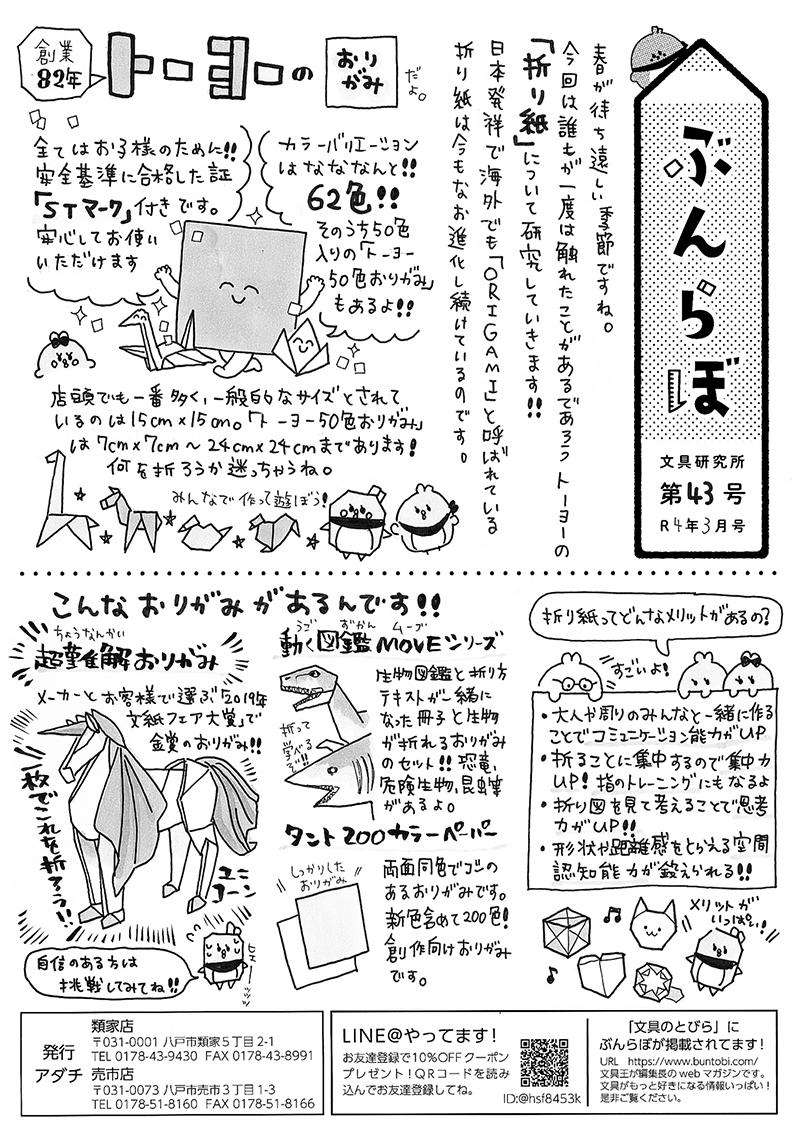 ぶんらぼ
文具研究所
第43号
R4年3月号
春が待ち遠しい季節ですね。
今回は誰もが一度は触れたことがあるであろうトーヨーの
「折り紙」について研究していきます!!
日本発祥で海外でも「ORIGAMI」と呼ばれている
折り紙は今もなお進化し続けているのです。
創業
82年
トーヨーの
おり
がみ
だよ。
全てはお子様のために!!
安全基準に合格した証
「STマーク」付きです。
安心してお使い
いただけます
カラーバリエーション
はなななんと!!
62色!!
そのうち50色
入りの「トーヨー
50色おりがみ」
もあるよ!!
店頭でも一番多く、一般的なサイズとされて
いるのは15cm×15cm。「トーヨー50色おりがみ」
は7cm×7cm～24cm×24cmまであります!
何を折ろうか迷っちゃうね。
みんなで作って遊ぼう!
こんなおりがみがあるんです!!
ちょうなんかい
超難解おりがみ
メーカーとお客様で選ぶ「2019年
文紙フェア大賞」で
金賞のおりがみ!!
一枚でこれを折ろう!!
ユニ
コーン
自信のある方は
挑戦してみてね!!
うご ずかん ムーブ
動く図鑑MOVEシリーズ
折って
学べる
ぞ!!
生物図鑑と折り方
テキストが一緒に
なった冊子と生物
が折れるおりがみ
のセット!! 恐竜、
危険生物、昆虫等
があるよ。
タント200カラーペーパー
しっかりした
おりがみ
両面同色でコシの
あるおりがみです。
新色含めて200色!
創作向けおりがみ
です。
折り紙ってどんなメリットがあるの?
すごいよ!
・大人や周りのみんなと一緒に作る
ことでコミュニケーション能力がUP
・折ることに集中するので集中力
UP! 指のトレーニングにもなるよ
・折り図を見て考えることで思考
力がUP!!
・形状や距離感をとらえる空間
認知能力が鍛えられる!!
メリットが
いっぱい!
発行
アダチ
類家店
〒031-0001 八戸市類家5丁目2-1
TEL 0178-43-9430 FAX 0178-43-8991
売市店
〒031-0073 八戸市売市3丁目1-3
TEL 0178-51-8160 FAX 0178-51-8166
LINE@やってます!
お友達登録で10%OFFクーポン
プレゼント!QRコードを読み
込んでお友達登録してね。
ID:@hsf8453k
「文具のとびら」に
ぶんらぼが掲載されてます!
URL https://www.buntobi.com/
文具王が編集長のwebマガジンです。
文具がもっと好きになる情報いっぱい!
是非ご覧ください。